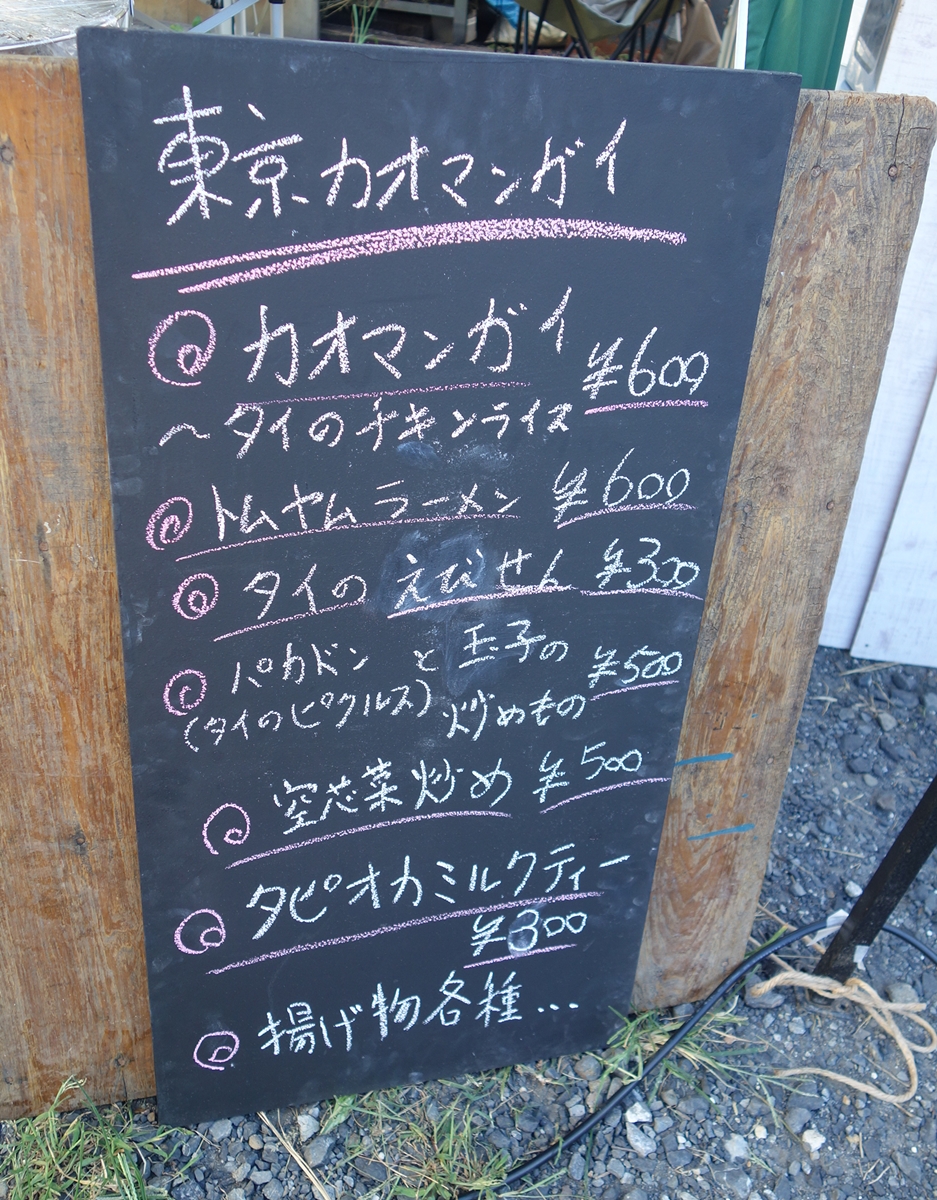 東京カオマンガイ
カオマンガイ ¥600
〜タイのチキンライス
トムヤムラーメン ¥600
タイのえびせん ¥300
パカドンと玉子の ¥500
(タイのピクルス) 炒めもの
空芯菜炒め ¥500
タピオカミルクティー
¥300
揚げ物各種...